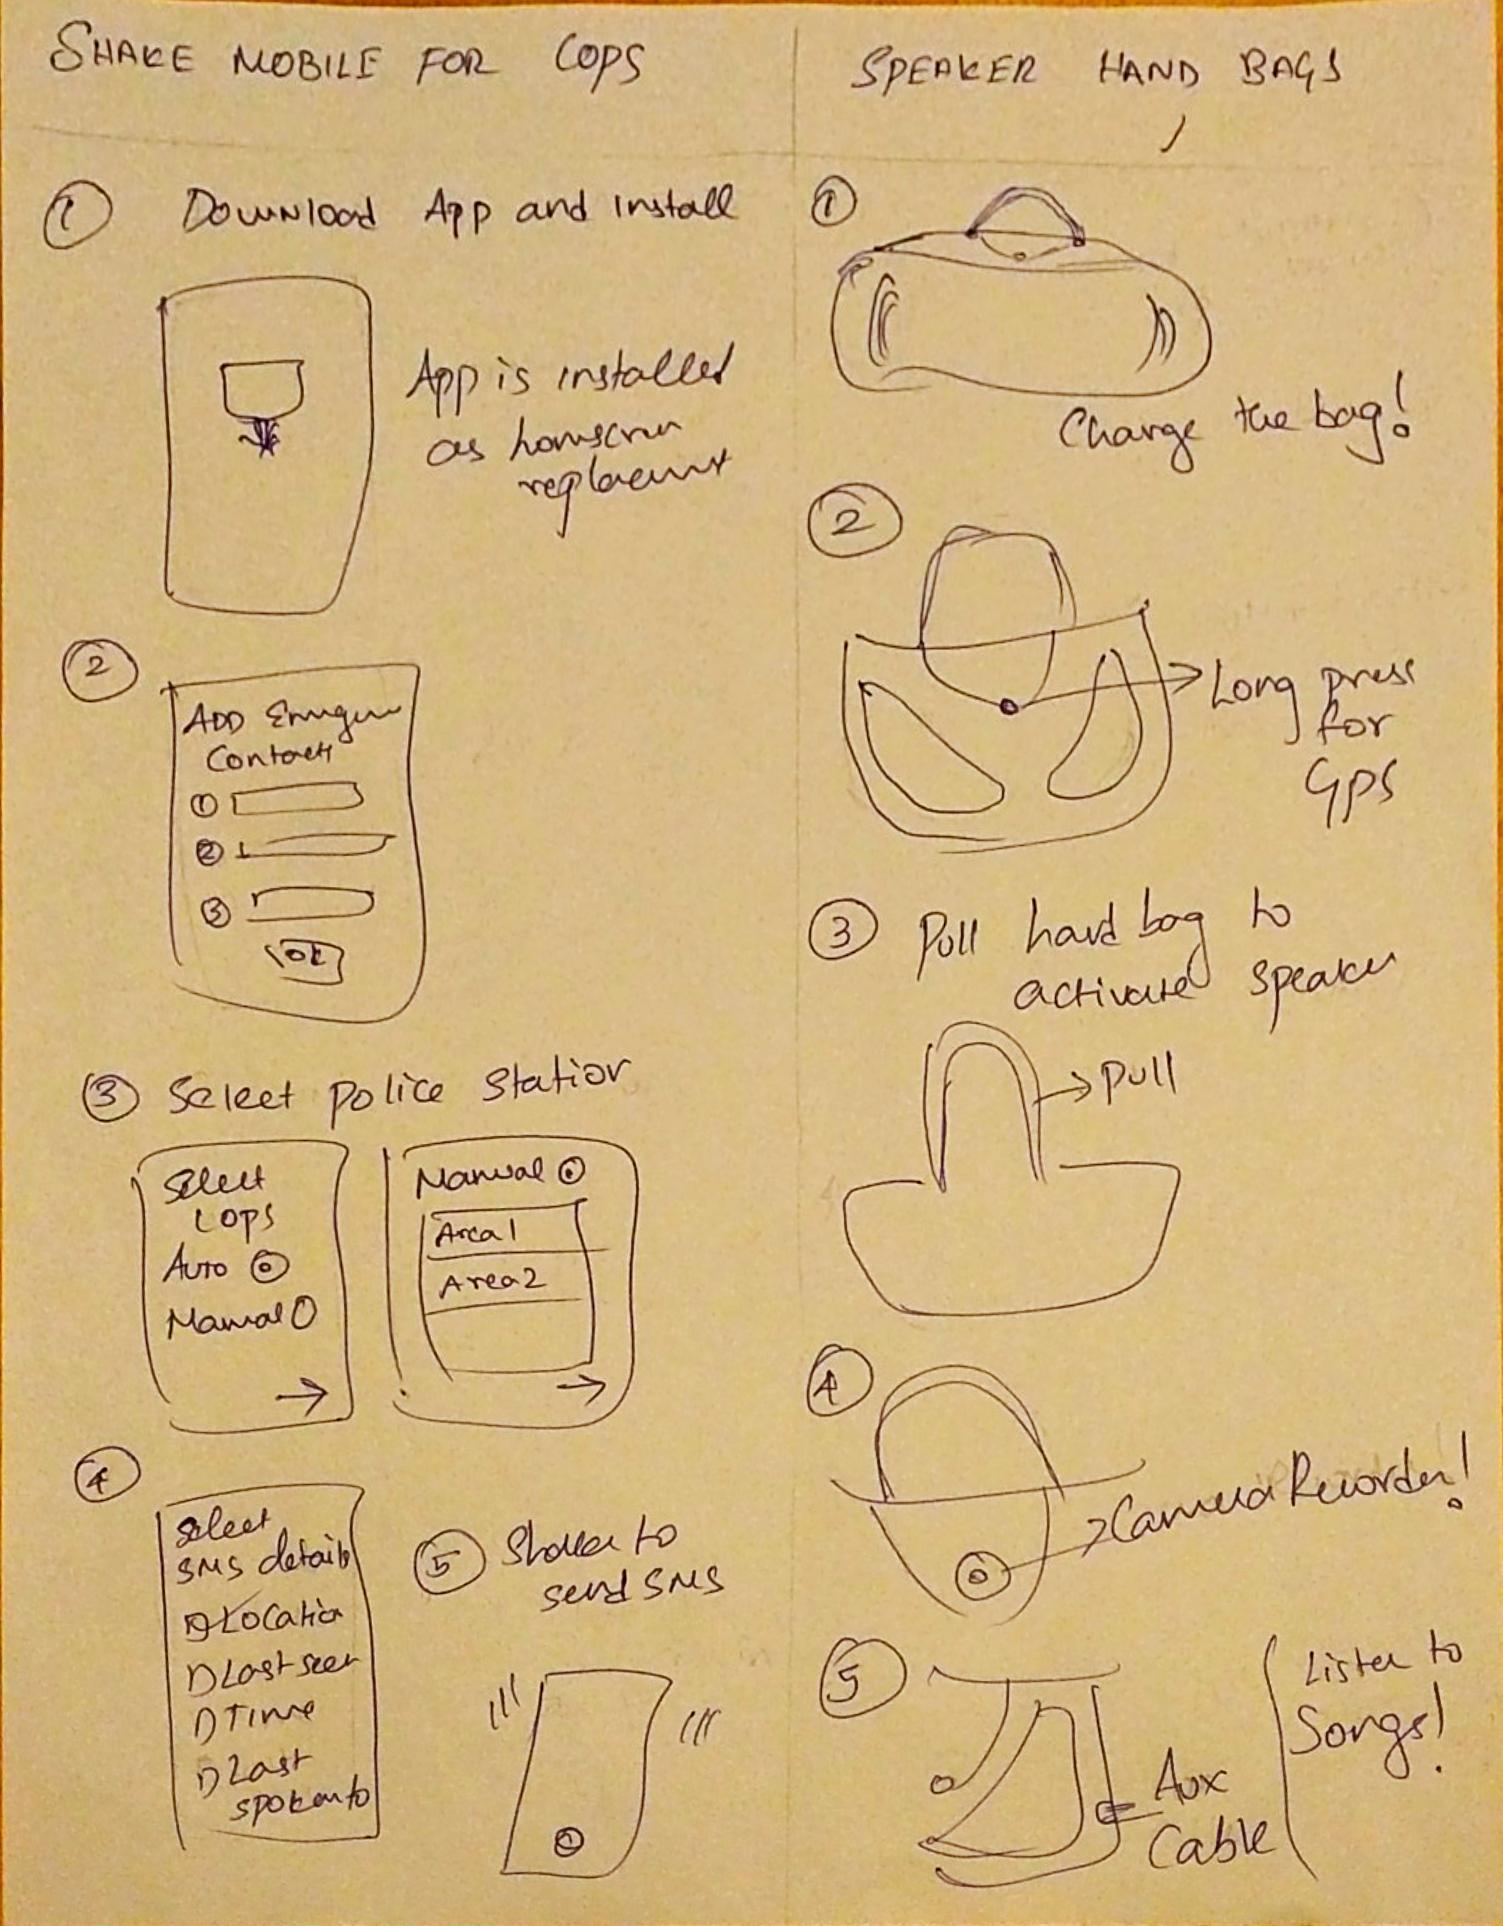 SHAKE MOBILE FOR COPS
① Download App and install
App is installed
as homscrun
replacemnt
②
ADD Emrgen
Contacts
①
②
③
OK
③ Select police station
Select
COPS
Auto
Manual
Manual
Area1
Area2
④
Select
SMS details
Location
Last seen
Time
Last
spoken to
⑤ Shake to
send SMS
SPEAKER HAND BAGS
①
Charge the bag!
②
Long press
for
GPS
③ Pull hand bag to
activate speaker
Pull
④
Camera Recorder!
⑤
Aux
Cable
Listen to
Songs!